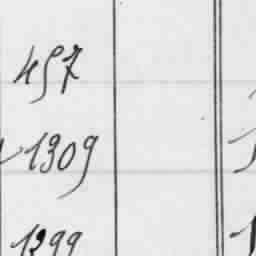 457
1309
1299